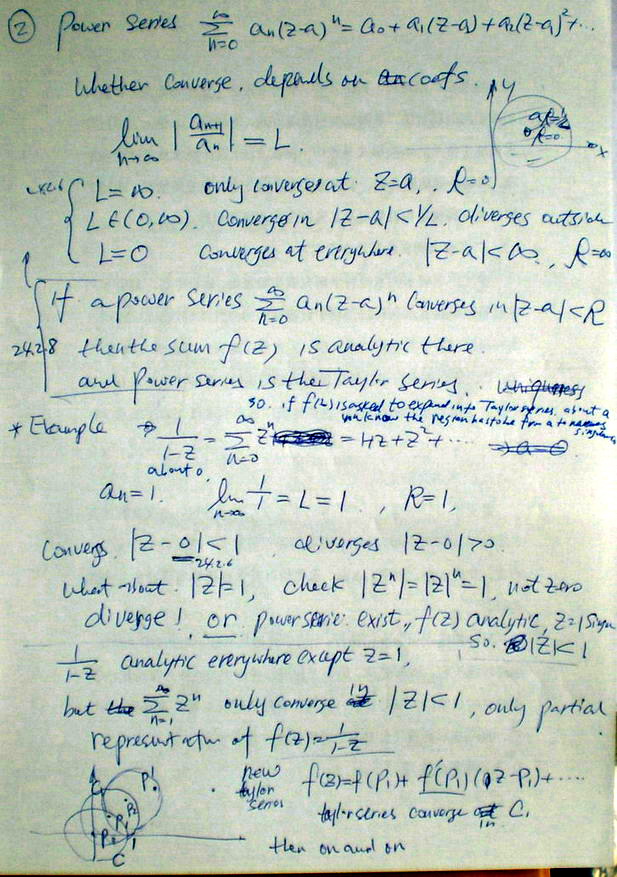 ② Power series ∞ Σ n=0 an(z-a)ⁿ = a₀ + a₁(z-a) + a₂(z-a)² + ...
Whether Converge, depends on coefs.
y
lim n→∞ |an+1/an| = L.
R=0
x
L=∞. only converges at z=a, ∴ R=0
L∈(0,∞). Converges in |z-a|<1/L. diverges outside
L=0 Converges at everywhere. |z-a|<∞ ∴ R=∞
If a power series ∞ Σ n=0 an(z-a)ⁿ Converges in |z-a|<R
24.2.8 then the sum f(z) is analytic there.
and Power series is the Taylor series.
so. if f(z) is asked to expand into Taylor series. about a
you know the region has to be from a to nearest
* Example 1/1-z = ∞ Σ n=0 zⁿ = 1+z+z²+ ....
about 0
an=1. lim n→∞ 1/1 = L = 1 ∴ R=1,
Convergs. |z-0|<1 diverges |z-0|>0.
24.2.6
what about |z|=1, check |zⁿ|=|z|ⁿ=1, not zero
diverge! or power serie exist, f(z) analytic, z=1
So. |z|<1
1/1-z analytic everywhere except z=1,
but ∞ Σ n=1 zⁿ only converge in |z|<1, only partial
representation of f(z)=1/1-z
new f(z)=f(P₁)+f'(P₁)(z-P₁)+....
taylor
series taylor series converge in C₁
then on and on